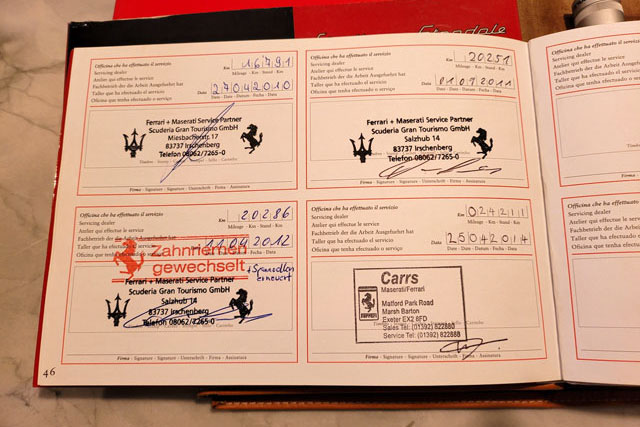 Officina che ha effettuato il servizio
Servicing dealer
Atelier qui effectue le service
Fachbetrieb der die Arbeit Ausgefuehrt hat
Taller que ha efectuado el servicio
Oficina que tenha efectuado o serviço
Km 16791
Mileage - Km - Stand - Km
Data 27042010
Date - Date - Datum - Fecha - Data
Ferrari + Maserati Service Partner
Scuderia Gran Tourismo GmbH
Miesbacherstr. 17
83737 Irschenberg
Telefon 08062/7265-0
Firma - Signature - Signature - Unterschrift - Firma - Assinatura
Officina che ha effettuato il servizio
Servicing dealer
Atelier qui effectue le service
Fachbetrieb der die Arbeit Ausgefuehrt hat
Taller que ha efectuado el servicio
Oficina que tenha efectuado o serviço
Km 20251
Mileage - Km - Stand - Km
Data 01092011
Date - Date - Datum - Fecha - Data
Ferrari + Maserati Service Partner
Scuderia Gran Tourismo GmbH
Salzhub 14
83737 Irschenberg
Telefon 08062/7265-0
Firma - Signature - Signature - Unterschrift - Firma - Assinatura
Officina che ha effettuato il servizio
Servicing dealer
Atelier qui effectue le service
Fachbetrieb der die Arbeit Ausgefuehrt hat
Taller que ha efectuado el servicio
Oficina que tenha
Km 20286
Mileage - Km - Stand - Km
11042012
Date - Date - Datum - Fecha - Data
Zahnriemen
gewechselt
erneuert
Ferrari + Maserati Service Partner
Scuderia Gran Tourismo GmbH
Salzhub 14
83737 Irschenberg
Telefon 08062/7265-0
Firma - Signature - Signature - Unterschrift - Firma - Assinatura
Officina che ha effettuato il servizio
Servicing dealer
Atelier qui effectue le service
Fachbetrieb der die Arbeit Ausgefuehrt hat
Taller que ha efectuado el servicio
Oficina que tenha efectuado o serviço
Km 024211
Mileage - Km - Stand - Km
Data 25042014
Date - Date - Datum - Fecha - Data
Carrs
Maserati/Ferrari
Matford Park Road
Marsh Barton
Exeter EX2 8FD
Sales Tel: (01392) 822880
Service Tel: (01392) 822888
FERRARI
Firma - Signature - Signature - Unterschrift - Firma - Assinatura
46
Officina che ha effettuato
Servicing dealer
Atelier qui effectue le service
Fachbetrieb der die Arbeit
Taller que ha efectuado el
Oficina que tenha efectuado
Officina che ha effettuato
Servicing dealer
Atelier qui effectue le service
Fachbetrieb der die Arbeit
Taller que ha efectuado
Oficina que tenha